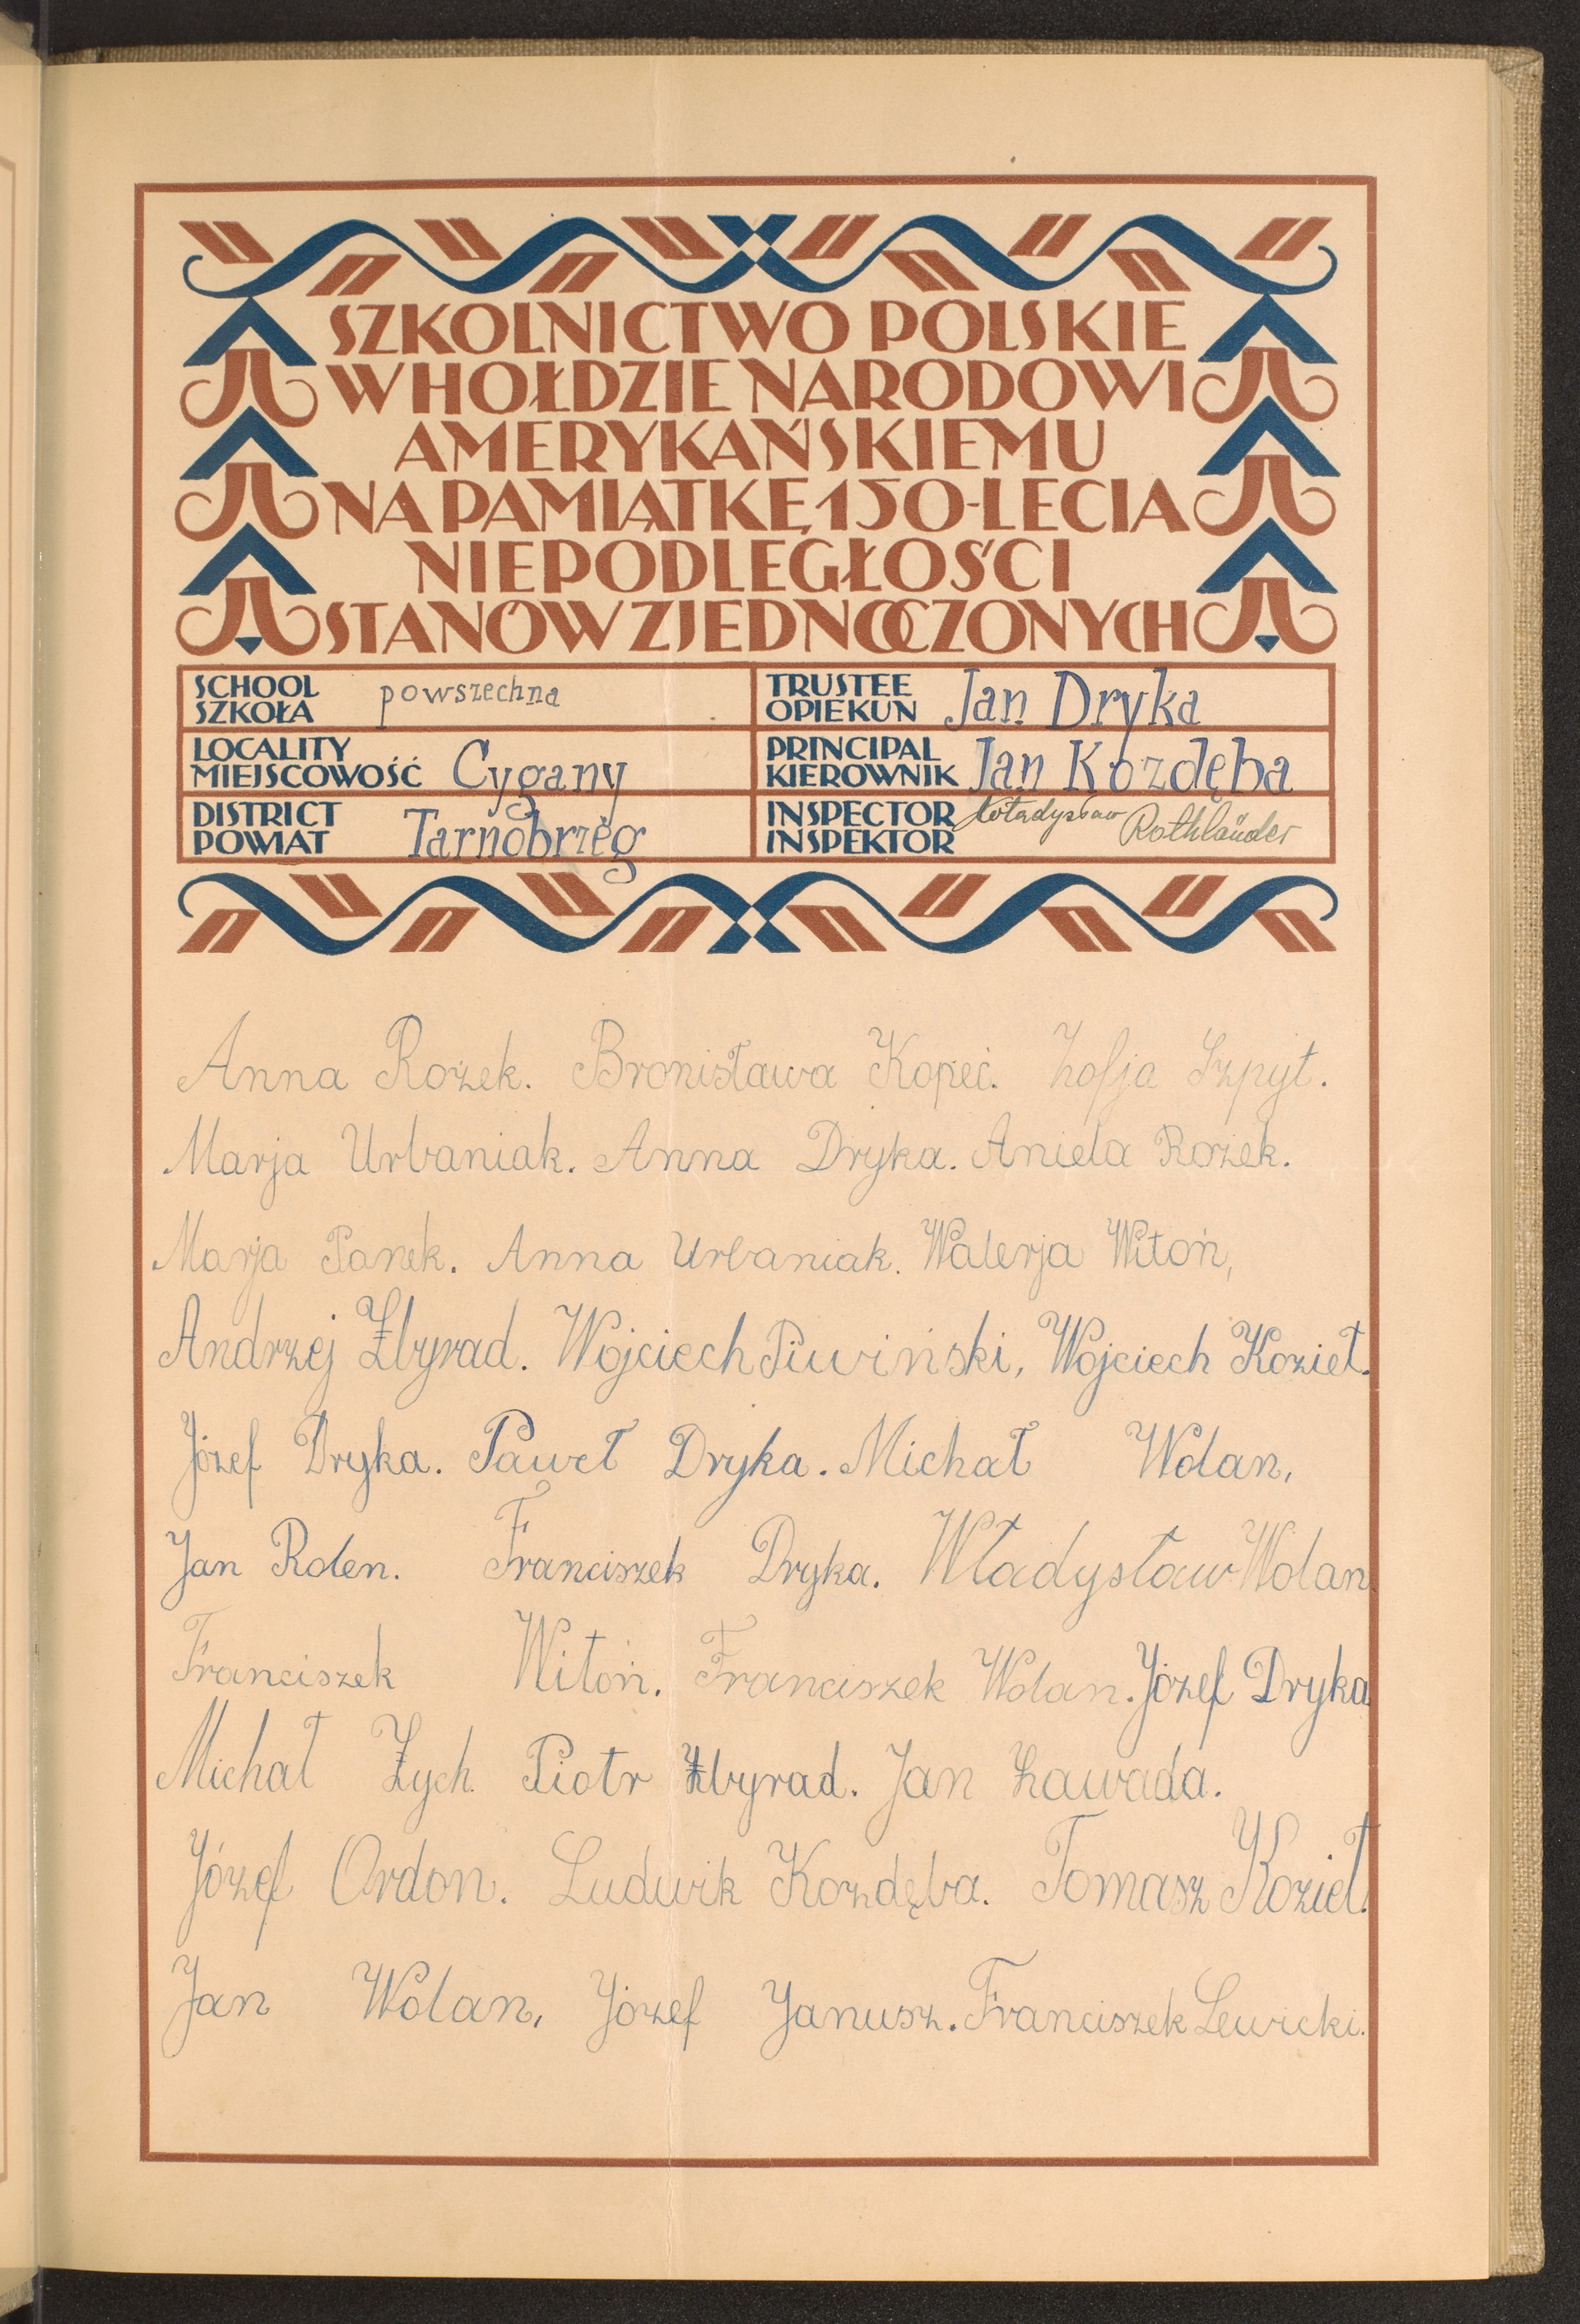 SZKOLNICTWO POLSKIE
W HOŁDZIE NARODOWI
AMERYKAŃSKIEMU
NA PAMIĄTKĘ 150-LECIA
NIEPODLEGŁOŚCI
STANÓW ZJEDNOCZONYCH
SCHOOL
SZKOŁA powszechna
TRUSTEE
OPIEKUN Jan Dryka
LOCALITY
MIEJSCOWOŚĆ Cygany
PRINCIPAL
KIEROWNIK Jan Kozdęba
DISTRICT
POWIAT Tarnobrzeg
INSPECTOR
INSPEKTOR Władysław Rothländer
Anna Rożek. Bronisława Kopeć. Zofja Szpyt.
Marja Urbaniak. Anna Dryka. Aniela Rożek.
Marja Panek. Anna Urbaniak. Walerja Witoń,
Andrzej Zbyrad. Wojciech Piwiński, Wojciech Kozieł.
Józef Dryka. Paweł Dryka. Michał Wolan,
Jan Rolen. Franciszek Dryka. Władysław Wolan
Franciszek Witoń. Franciszek Wolan. Józef Dryka
Michał Zych. Piotr Zbyrad. Jan Zawada.
Józef Ordon. Ludwik Kozdęba. Tomasz Kozieł.
Jan Wolan, Józef Janusz. Franciszek Lewicki.